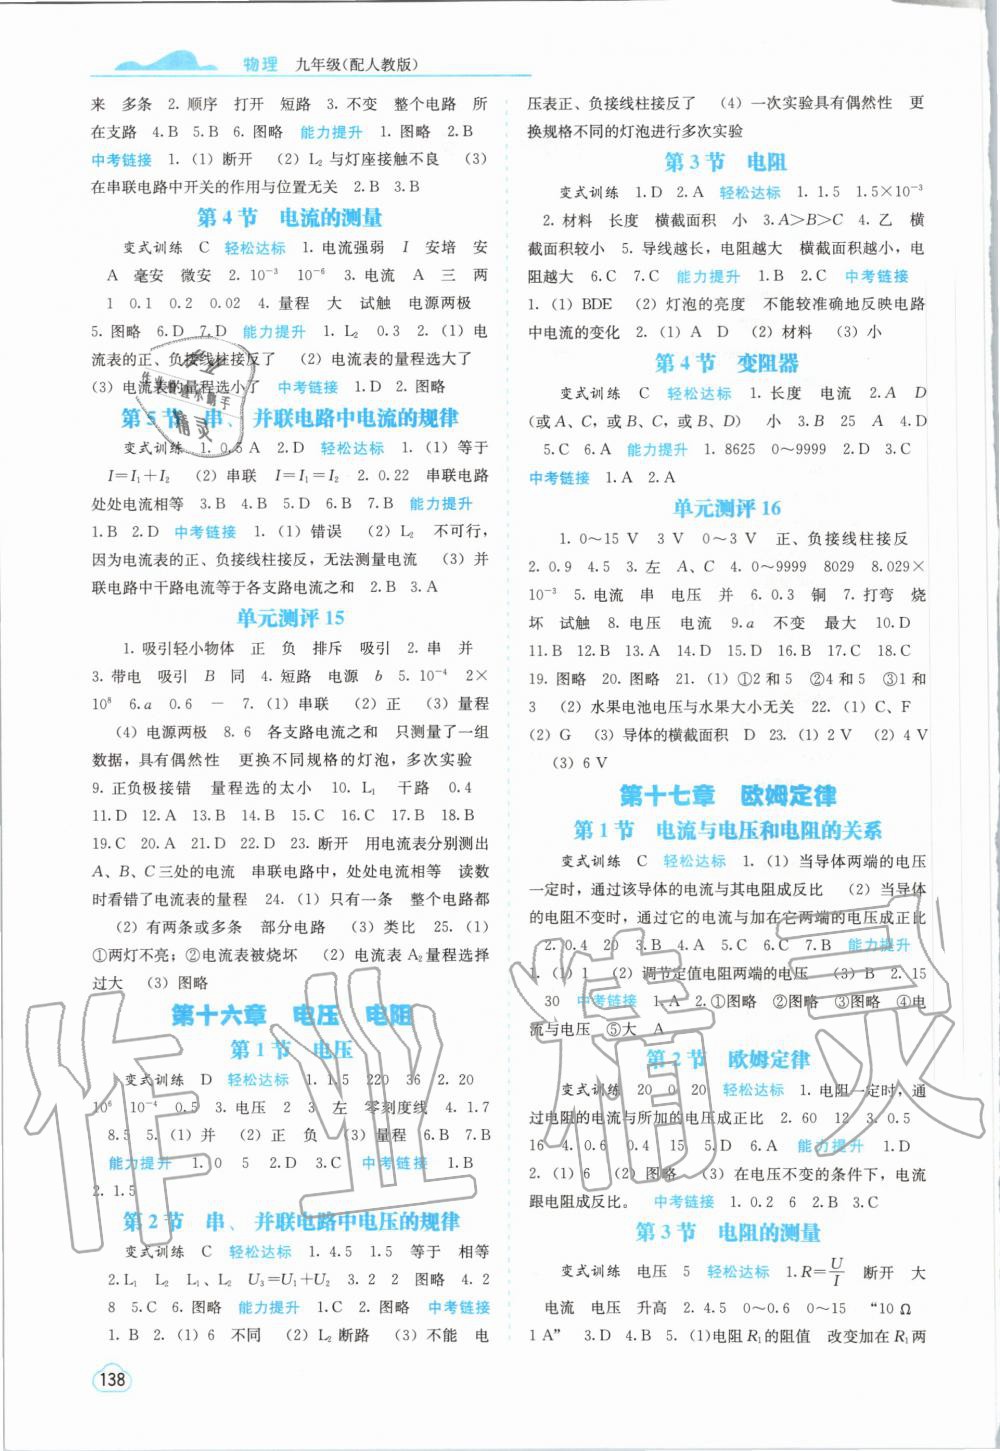 物理 九年级(配人教版)
来 多条 2. 顺序 打开 短路 3. 不变 整个电路 所
在支路 4. B 5. B 6. 图略 能力提升 1. 图略 2. B
中考链接 1. (1) 断开 (2) L₂ 与灯座接触不良 (3)
在串联电路中开关的作用与位置无关 2. B 3. B
第 4 节 电流的测量
变式训练 C 轻松达标 1. 电流强弱 I 安培 安
A 毫安 微安 2. 10⁻³ 10⁻⁶ 3. 电流 A 三 两
1 0.1 0.2 0.02 4. 量程 大 试触 电源两极
5. 图略 6. D 7. D 能力提升 1. L₂ 0.3 2. (1) 电
流表的正、负接线柱接反了 (2) 电流表的量程选大了
(3) 电流表的量程选小了 中考链接 1. D 2. 图略
第 5 节 串、并联电路中电流的规律
变式训练 1. 0.5 A 2. D 轻松达标 1. (1) 等于
I=I₁+I₂ (2) 串联 I=I₁=I₂ 2. 0.22 串联电路
处处电流相等 3. B 4. B 5. D 6. B 7. B 能力提升
1. B 2. D 中考链接 1. (1) 错误 (2) L₂ 不可行，
因为电流表的正、负接线柱接反，无法测量电流 (3) 并
联电路中干路电流等于各支路电流之和 2. B 3. A
单元测评 15
1. 吸引轻小物体 正 负 排斥 吸引 2. 串 并
3. 带电 吸引 B 同 4. 短路 电源 b 5. 10⁻⁴ 2×
10⁸ 6. a 0.6 − 7. (1) 串联 (2) 正 (3) 量程
(4) 电源两极 8. 6 各支路电流之和 只测量了一组
数据，具有偶然性 更换不同规格的灯泡，多次实验
9. 正负极接错 量程选的太小 10. L₁ 干路 0.4
11. D 12. A 13. B 14. B 15. D 16. A 17. B 18. A
19. C 20. A 21. D 22. D 23. 断开 用电流表分别测出
A、B、C 三处的电流 串联电路中，处处电流相等 读数
时看错了电流表的量程 24. (1) 只有一条 整个电路都
(2) 有两条或多条 部分电路 (3) 类比 25. (1)
①两灯不亮；②电流表被烧坏 (2) 电流表 A₂ 量程选择
过大 (3) 图略
第十六章 电压 电阻
第 1 节 电压
变式训练 D 轻松达标 1. 1.5 220 36 2. 20
10⁶ 10⁻⁴ 0.5 3. 电压 2 3 左 零刻度线 4. 1.7
8.5 5. (1) 并 (2) 正 负 (3) 量程 6. B 7. B
能力提升 1. 0 5 2. D 3. C 中考链接 1. B
2. 1.5
第 2 节 串、并联电路中电压的规律
变式训练 C 轻松达标 1. 4.5 1.5 等于 相等
2. L₁ L₂ L₁、L₂ U₃=U₁+U₂ 3. 2 2 图略 4. 2
8 5. C 6. 图略 能力提升 1. C 2. 图略 中考链接
1. B 2. (1) 6 不同 (2) L₂ 断路 (3) 不能 电
138
压表正、负接线柱接反了 (4) 一次实验具有偶然性 更
换规格不同的灯泡进行多次实验
第 3 节 电阻
变式训练 1. D 2. A 轻松达标 1. 1.5 1.5×10⁻³
2. 材料 长度 横截面积 小 3. A>B>C 4. 乙 横
截面积较小 5. 导线越长，电阻越大 横截面积越小，电
阻越大 6. C 7. C 能力提升 1. B 2. C 中考链接
1. (1) BDE (2) 灯泡的亮度 不能较准确地反映电路
中电流的变化 2. (1) A D (2) 材料 (3) 小
第 4 节 变阻器
变式训练 C 轻松达标 1. 长度 电流 2. A D
(或 A、C，或 B、C，或 B、D) 小 3. B 25 A 4. D
5. C 6. A 能力提升 1. 8625 0～9999 2. D 3. C
中考链接 1. A 2. A
单元测评 16
1. 0～15 V 3 V 0～3 V 正、负接线柱接反
2. 0.9 4.5 3. 左 A、C 4. 0～9999 8029 8.029×
10⁻³ 5. 电流 串 电压 并 6. 0.3 铜 7. 打弯 烧
坏 试触 8. 电压 电流 9. a 不变 最大 10. D
11. B 12. B 13. D 14. D 15. D 16. B 17. C 18. C
19. 图略 20. 图略 21. (1) ①2 和 5 ②4 和 5 ③1 和
3 (2) 水果电池电压与水果大小无关 22. (1) C、F
(2) G (3) 导体的横截面积 D 23. (1) 2 V (2) 4 V
(3) 6 V
第十七章 欧姆定律
第 1 节 电流与电压和电阻的关系
变式训练 C 轻松达标 1. (1) 当导体两端的电压
一定时，通过该导体的电流与其电阻成反比 (2) 当导体
的电阻不变时，通过它的电流与加在它两端的电压成正比
2. 0.4 20 3. B 4. A 5. C 6. C 7. B 能力提升
1. (1) 1 (2) 调节定值电阻两端的电压 (3) B 2. 15
30 中考链接 1. A 2. ①图略 ②图略 ③图略 ④电
流与电压 ⑤大 A
第 2 节 欧姆定律
变式训练 20 0 20 轻松达标 1. 电阻一定时，通
过电阻的电流与所加的电压成正比 2. 60 12 3. 0.5
16 4. 0.6 0.4 15 5. D 6. A 能力提升 1. D
2. (1) 6 (2) 图略 (3) 在电压不变的条件下，电流
跟电阻成反比。 中考链接 1. 0.2 6 2. B 3. C
第 3 节 电阻的测量
变式训练 电压 5 轻松达标 1. R=U/I 断开 大
电流 电压 升高 2. 4.5 0～0.6 0～15 “10 Ω
1 A” 3. D 4. B 5. (1) 电阻 R₁ 的阻值 改变加在 R₁ 两
作业精灵